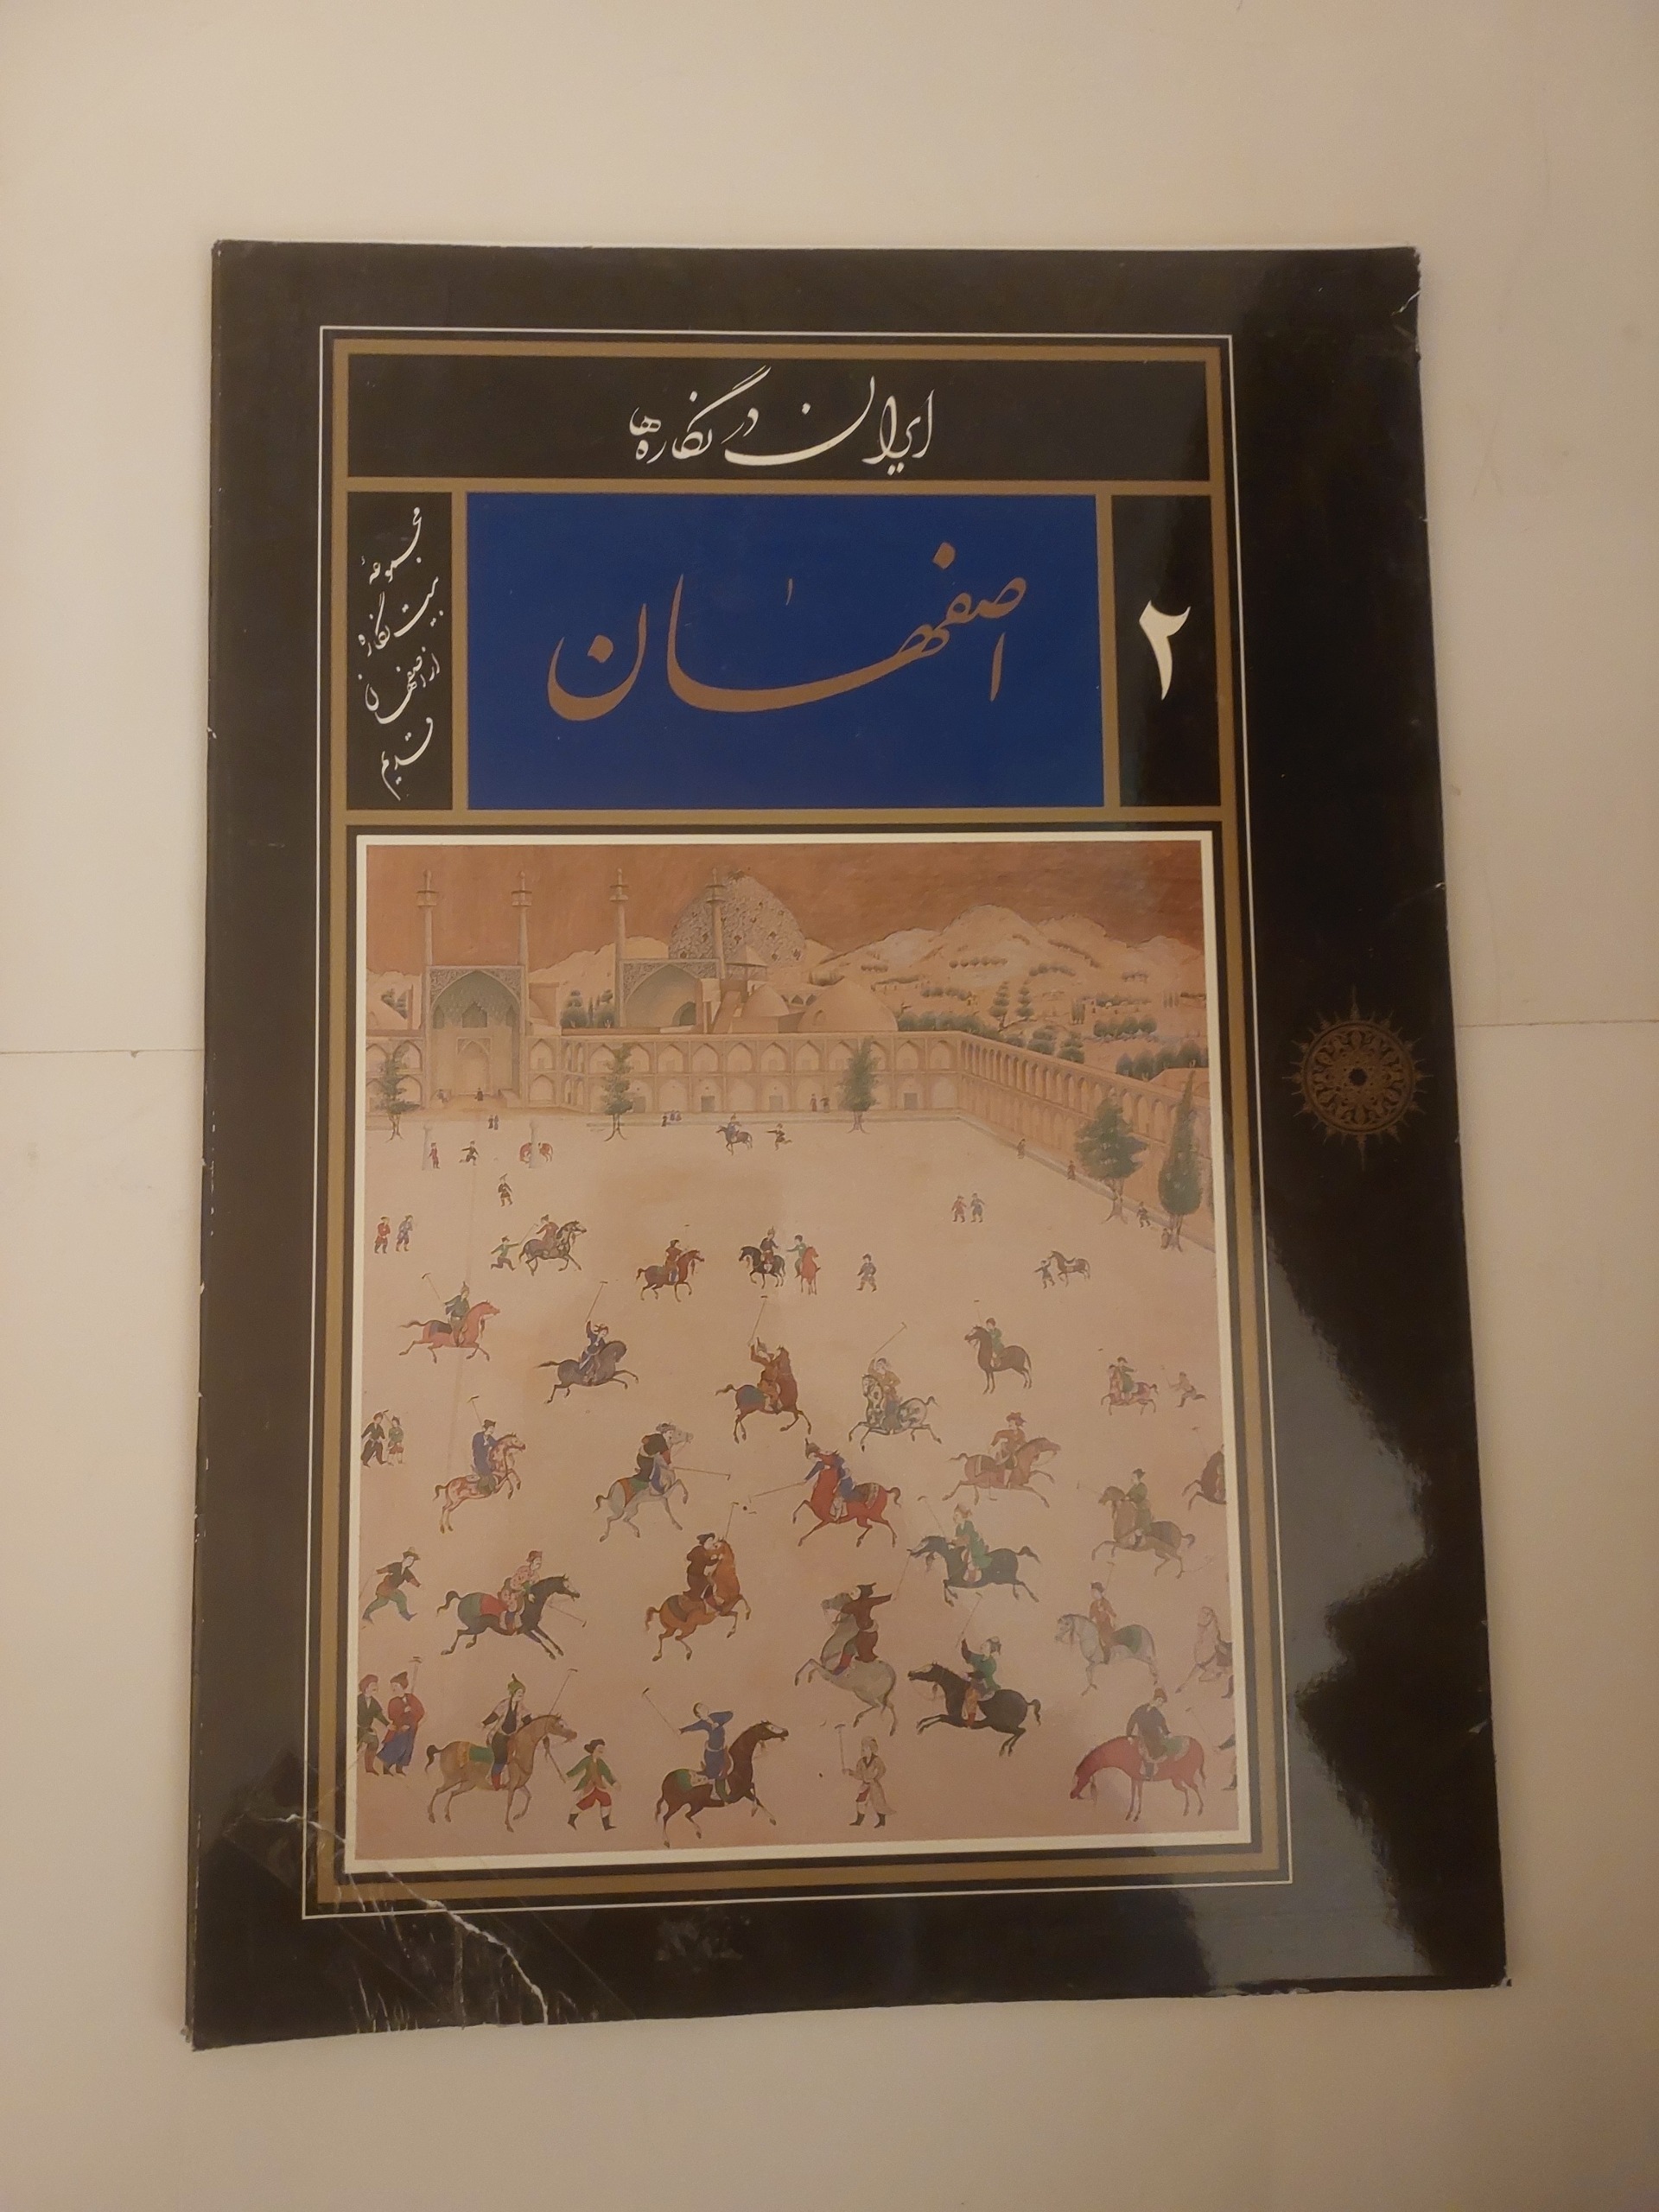 ایران در نگاره‌ها
۲
اصفهان
۱
مجموعهٔ
بیست نگاره
از اصفهان
قدیم